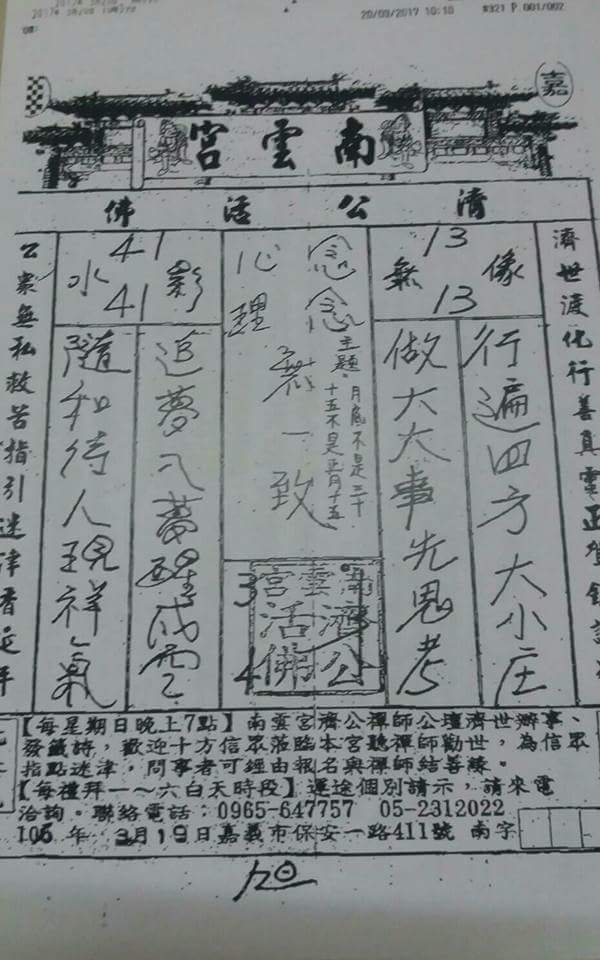 20/03/2017 10:10 #321 P.001/002
嘉
南雲宮
濟公活佛
濟世渡化行善真電正
13
無像
13
行遍四方大小庄
做大大事先思考
念念
心理
主題。月底不是三十
十五不是正月十五
一致
南雲宮
濟公
活佛
3
4
41
水影
41
追夢入夢醒成空
隨和待人現祥氣
公眾無私救苦指引迷津
【每星期日晚上7點】南雲宮濟公禪師公壇濟世辦事、
發籤詩，歡迎十方信眾蒞臨本宮聽禪師勸世，為信眾
指點迷津，問事者可經由報名與禪師結善緣。
【每禮拜一～六白天時段】運途個別請示，請來電
洽詢。聯絡電話：0965-647757 05-2312022
106年 3月19日嘉義市保安一路411號 南字